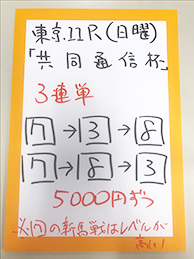 東京11R(日曜)
「共同通信杯」
3連単
7→3→8
7→8→3
5000円ずつ
の新馬戦はレベルが
高い!